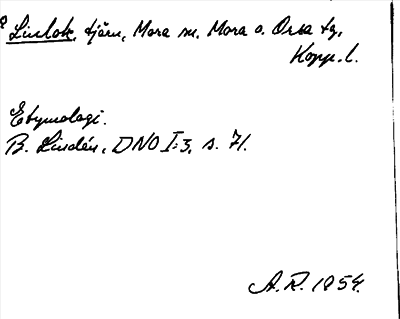 Linlok, tjärn, Mora sn. Mora o. Orsa tg,
Kopp. l.
Etymologi.
B. Lindén, DNO I:3, s. 71.
A.R. 1954.